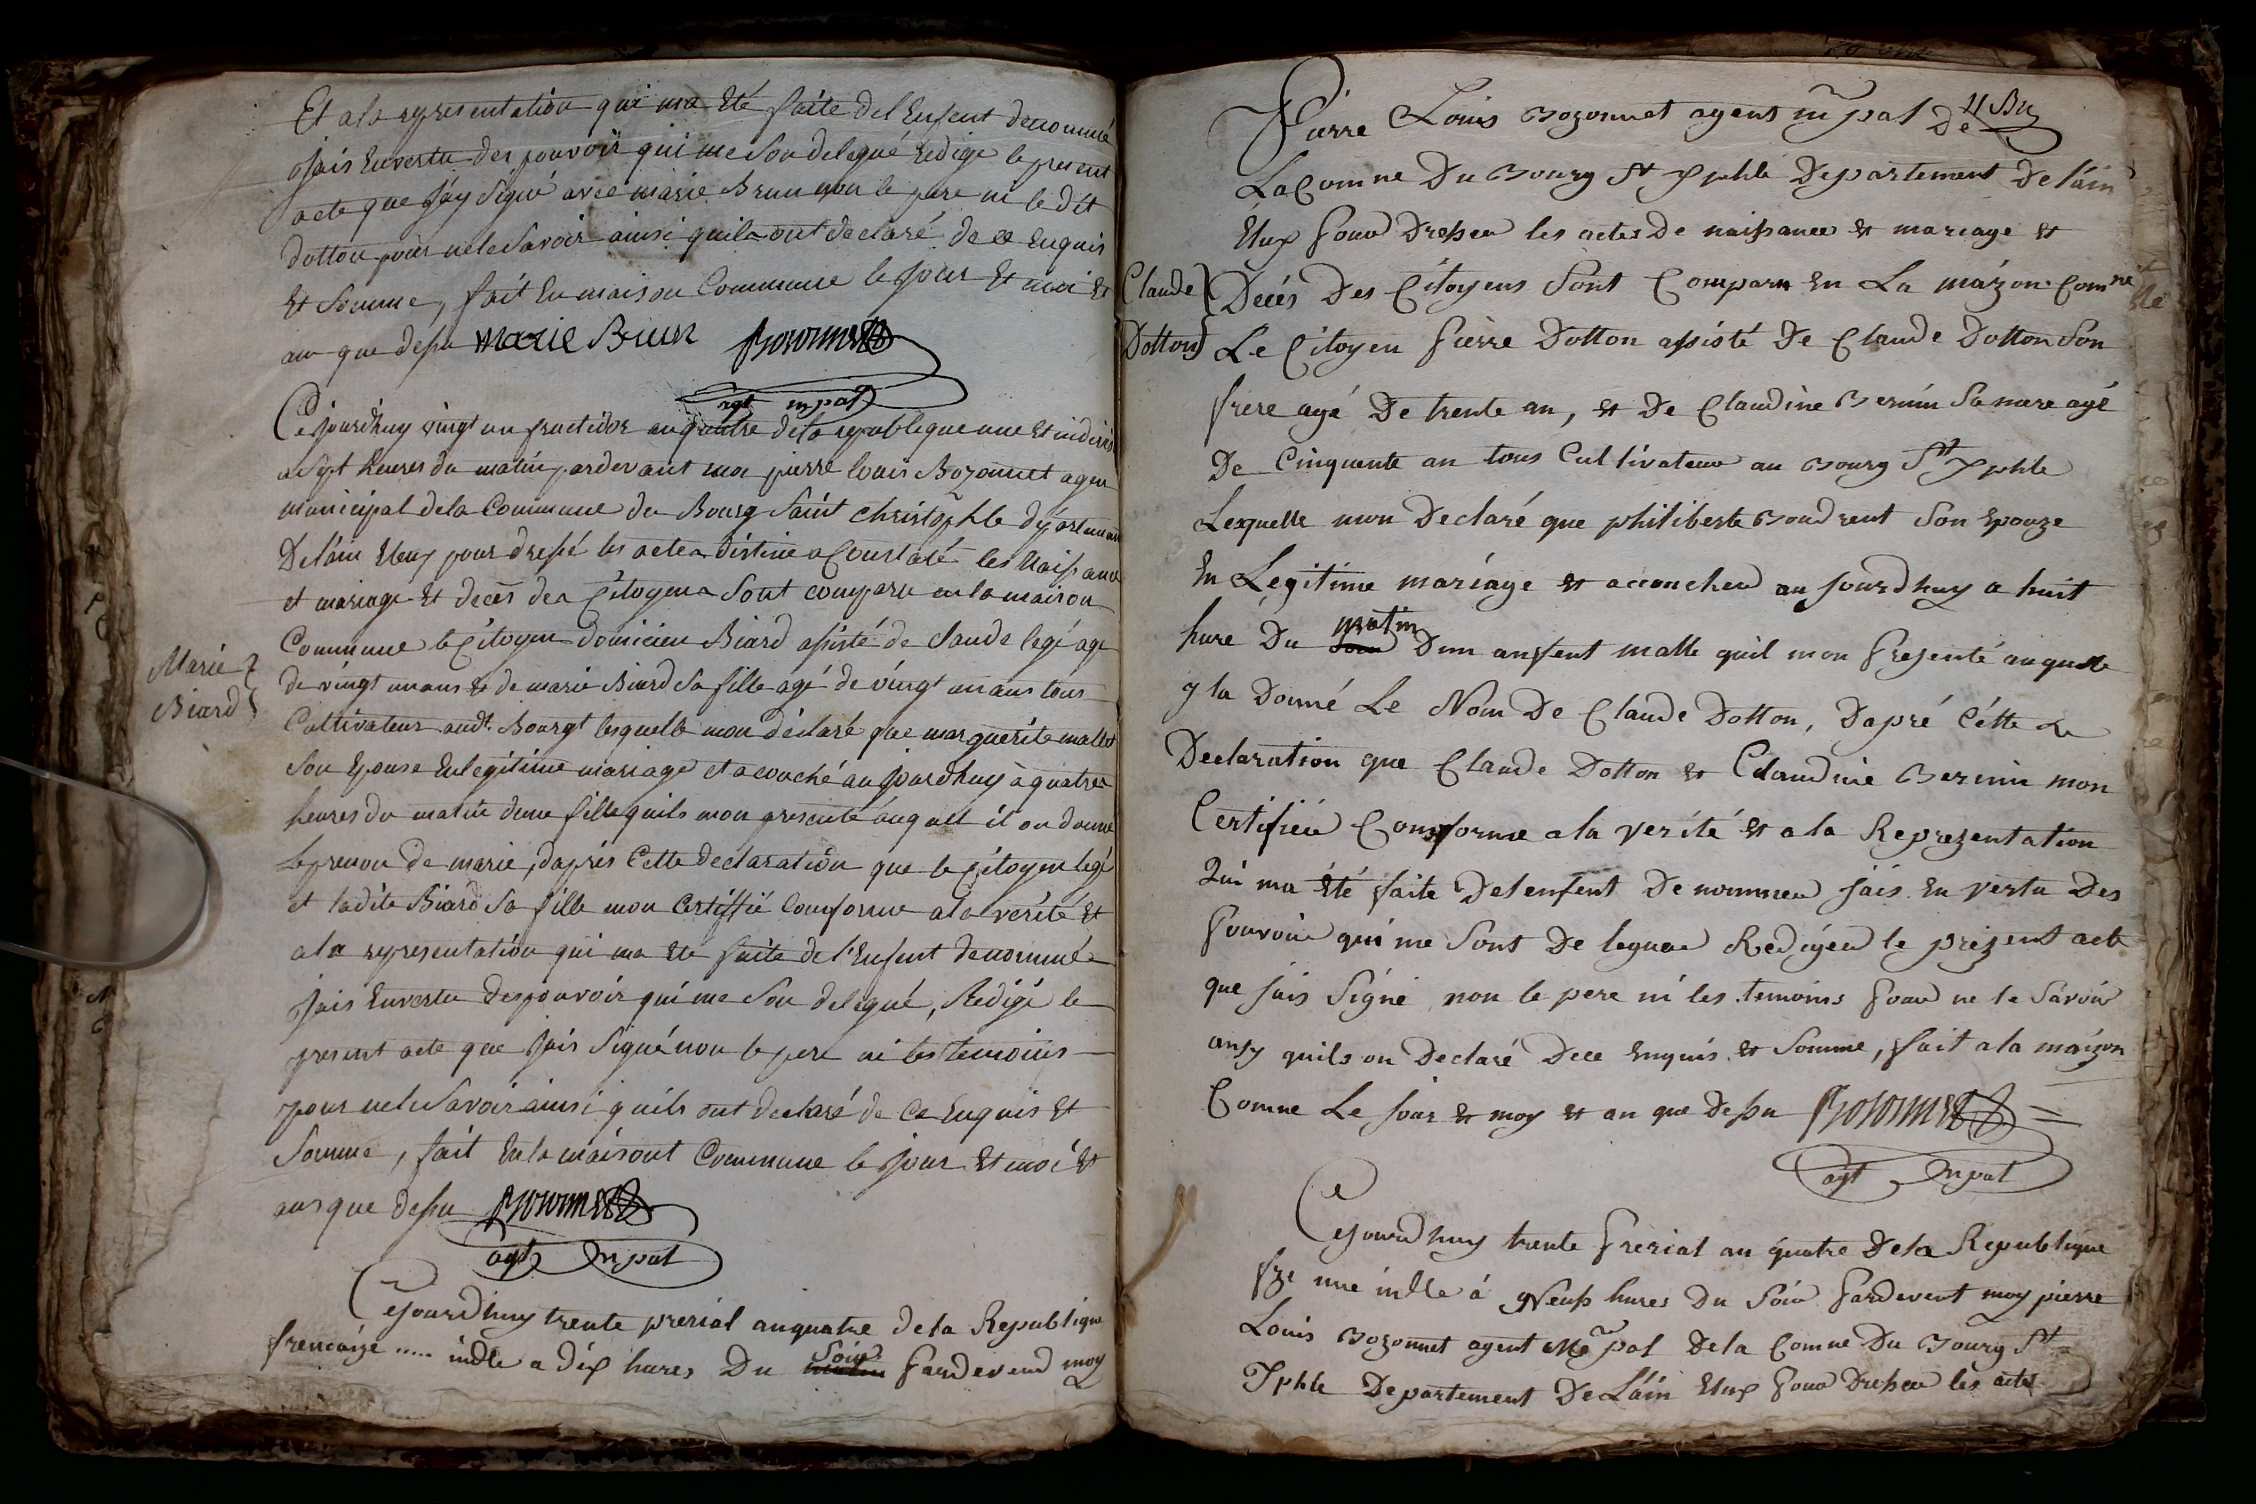 Et ala representation qui ma Eté faite del Enfent denommé
Jais Envertu des pouvoir qui me Son delegué Redigé le present
acte que J'ay Signé avec marie Brun non le pere ni le dit
dotton pour nele Savoir ainsi quila ont declaré de ce Enquis
Et Somme, fait En maison Commune le Jour Et moi Et
an que dessu marie Brun Bozonnet
agt mpal
Cejourdhuy vingt un fructidor an quatre dela republique une Et indivis
a Sept heures du matin pardevant moi pierre louis Bozonnet agen
municipal dela Commune du Bourg Saint christophle departement
Delain Eleus pour dressé les actes distiné a Constaté les Naissance
et mariage Et decès des Citoyens Sont comparu en la maison
Commune le Citoyen domicien Biard assisté de Claude legé agé
de vingt un ans Et de marie Biard Sa fille agé de vingt un ans tous
Cultivateur audt Bourgt lesquelle mon déclaré que marguerite mallet
Son Epouse En legitime mariage et acouché aujourdhuy à quatre
heures du matin dune fille quils mon presenté auquell il on donné
le prenon de marie, daprès Cette declaration que le Citoyen legé
et ladite Biard Sa fille mon Certiffié Conforme ala verité Et
ala representation qui ma Eté faite de l'Enfent denommé
Jais Envertu des pouvoir qui me Son delegué, Redigé le
present acte que Jais Signé non le pere ni les temoins
pour nele Savoir ainsi quils ont declaré de Ce Enquis Et
Somme, fait En la maisont Commune le Jour Et moi Et
ans que dessu Bozonnet
agt mpal
Marie
Biard
Cejourdhuy trente prerial an quatre dela Republique
frencaize ..... indle a dix hures Du matin Soir Pardevend moy
11 Bu
Pierre Louis Bozonnet agent mpal De
La Comne Du Bourg St Xphle Departement De lain
Elux Pour Dresser les actes De naissance Et mariage Et
Claude
Dotton
Decés Des Citoyens Sont Comparu En La maizon Comne
Le Citoyen Pierre Dotton assisté De Claude Dotton Son
frere agé De trente an, Et De Claudine Bernin Sa mere agé
De Cinquente an tous Cultivateur au Bourg St Xphle
Lexquelle mon Declaré que philiberte Boudrent Son Epouze
En Legitime mariage Et accoucheu aujourdhuy a huit
hure Du Soir matin Dun anfent malle quil mon Presenté auquelle
y la Donné Le Nom De Claude Dotton, Dapré Cette
Declaration que Claude Dotton Et Claudine Bernin mon
Certifiéu Comforme ala verité Et ala Reprezentation
Qui ma Eté faite Delenfent De nommeu Jais En vertu Des
Pouvoir qui me Sont De legueu Redigeu le prezent acte
que Jais Signé non le pere ni les temoins Pour ne le Savoir
ansy quils on Declaré Dece Enquis Et Somme, fait ala maizon
Comne Le Jour Et moy Et an que Dessu Bozonnet
agt mpal
Cejourdhuy trente Prerial an quatre Dela Republique
fze une indle à Neufs hures Du Soir Pardevent moy pierre
Louis Bozonnet agent Mepal Dela Comne Du Bourg St
Xphle Departement De Lain Elux Pour Dresser les acte